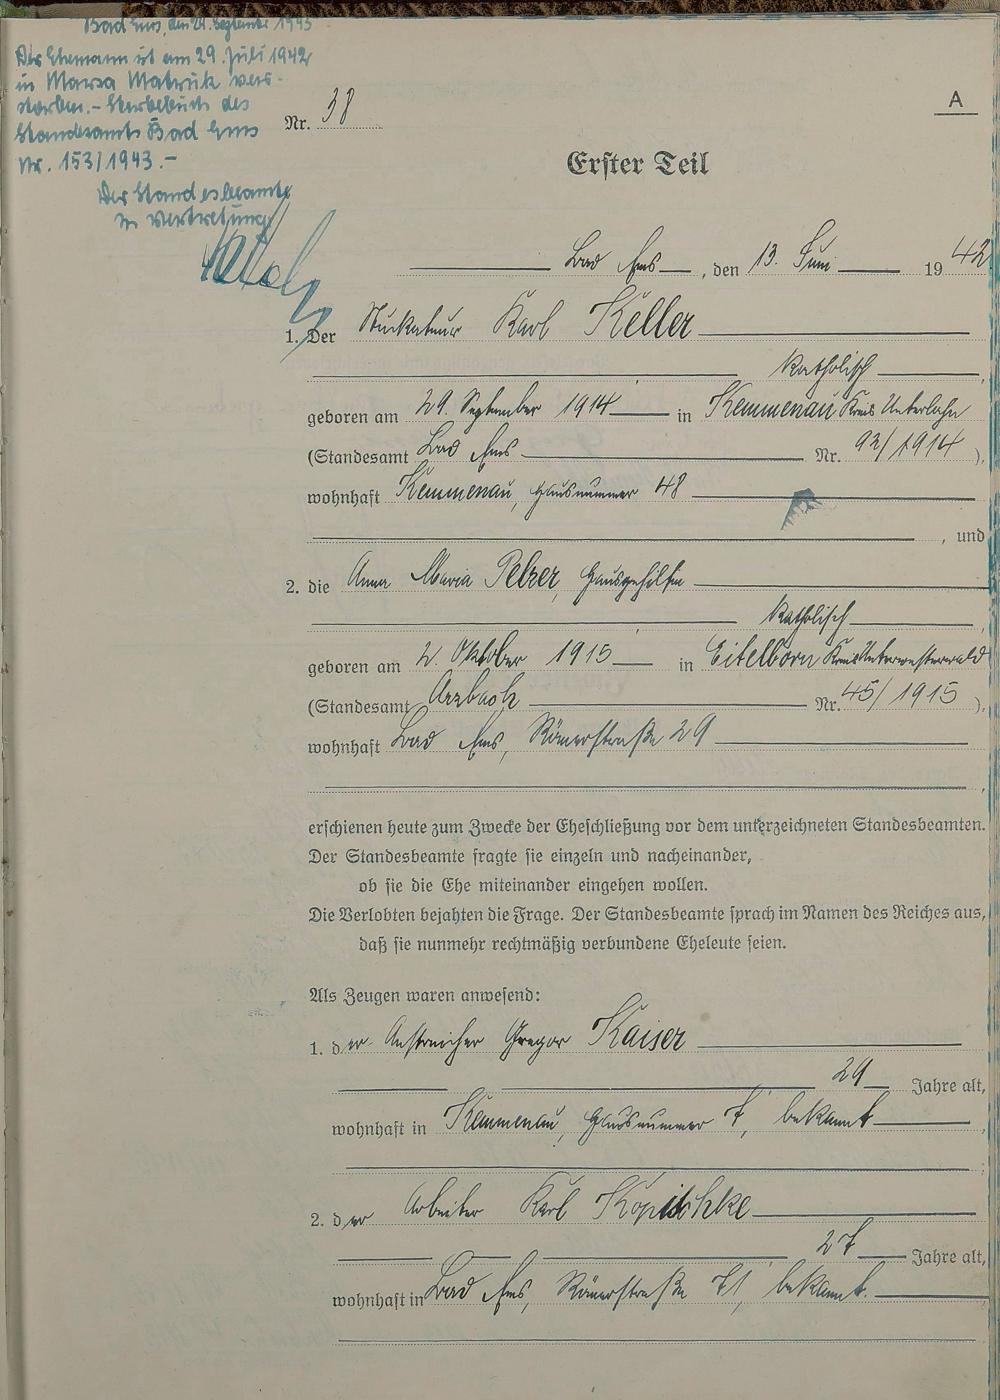 Bad Ems, den 24. September 1943
Der Ehemann ist am 29. Juli 1942
in Marsa Matruk ver-
storben. - Sterbebuch des
Standesamts Bad Ems
Nr. 153/1943. -
Der Standesbeamte
In Vertretung
A
Nr. 38
Erster Teil
Bad Ems, den 13. Juni 1942
1. Der Stuckateur Karl Keller
katholisch,
geboren am 29. September 1914 in Kemmenau Kreis Unterlahn
(Standesamt Bad Ems Nr. 92/1914),
wohnhaft Kemmenau, Hausnummer 48
, und
2. die Anna Maria Pelzer, Hausgehilfin
katholisch,
geboren am 2. Oktober 1915 in Eitelborn Kreis Unterwesterwald
(Standesamt Arzbach Nr. 45/1915),
wohnhaft Bad Ems, Römerstraße 29
,
erschienen heute zum Zwecke der Eheschließung vor dem unterzeichneten Standesbeamten.
Der Standesbeamte fragte sie einzeln und nacheinander,
ob sie die Ehe miteinander eingehen wollen.
Die Verlobten bejahten die Frage. Der Standesbeamte sprach im Namen des Reiches aus,
daß sie nunmehr rechtmäßig verbundene Eheleute seien.
Als Zeugen waren anwesend:
1. der Anstreicher Gregor Kaiser
29 Jahre alt,
wohnhaft in Kemmenau, Hausnummer 7, bekannt,
;
2. der Arbeiter Karl Kopitschke
27 Jahre alt,
wohnhaft in Bad Ems, Römerstraße 71, bekannt.